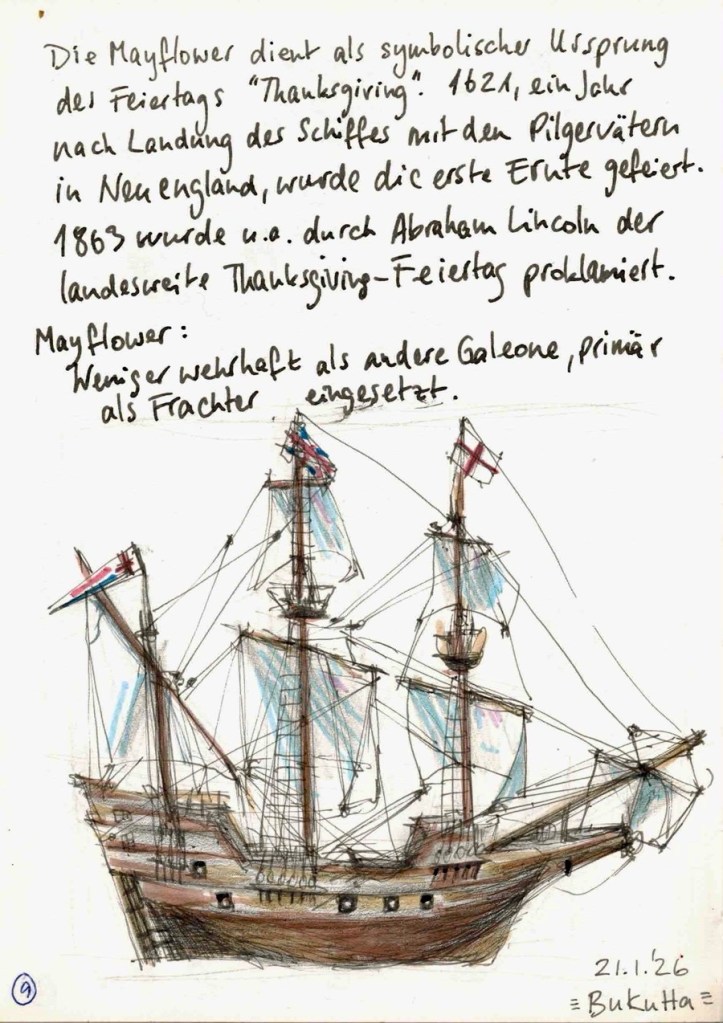 Die Mayflower dient als symbolischer Ursprung
des Feiertags "Thanksgiving". 1621, ein Jahr
nach Landung des Schiffes mit den Pilgervätern
in Neuengland, wurde die erste Ernte gefeiert.
1863 wurde u.a. durch Abraham Lincoln der
landesweite Thanksgiving-Feiertag proklamiert.
Mayflower:
Weniger wehrhaft als andere Galeone, primär
als Frachter eingesetzt.
21.1.'26
=BuKuHa=
9